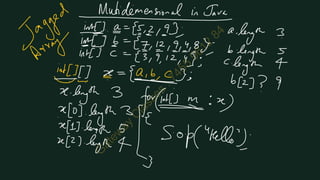 Multidimensional in Java
Jagged
Array
int[] a = {5, 2, 9};
int[] b = {7, 12, 9, 4, 8};
int[] c = {3, 9, 12,
a.length 3
b.length 5
c.length 4
b[2]? 9
int[][] x = {a, b, c};
x.length 3
x[0].length 3
x[1].length 5
x[2].length 4
for(int[] m : x)
{
Sop("Hello");
}